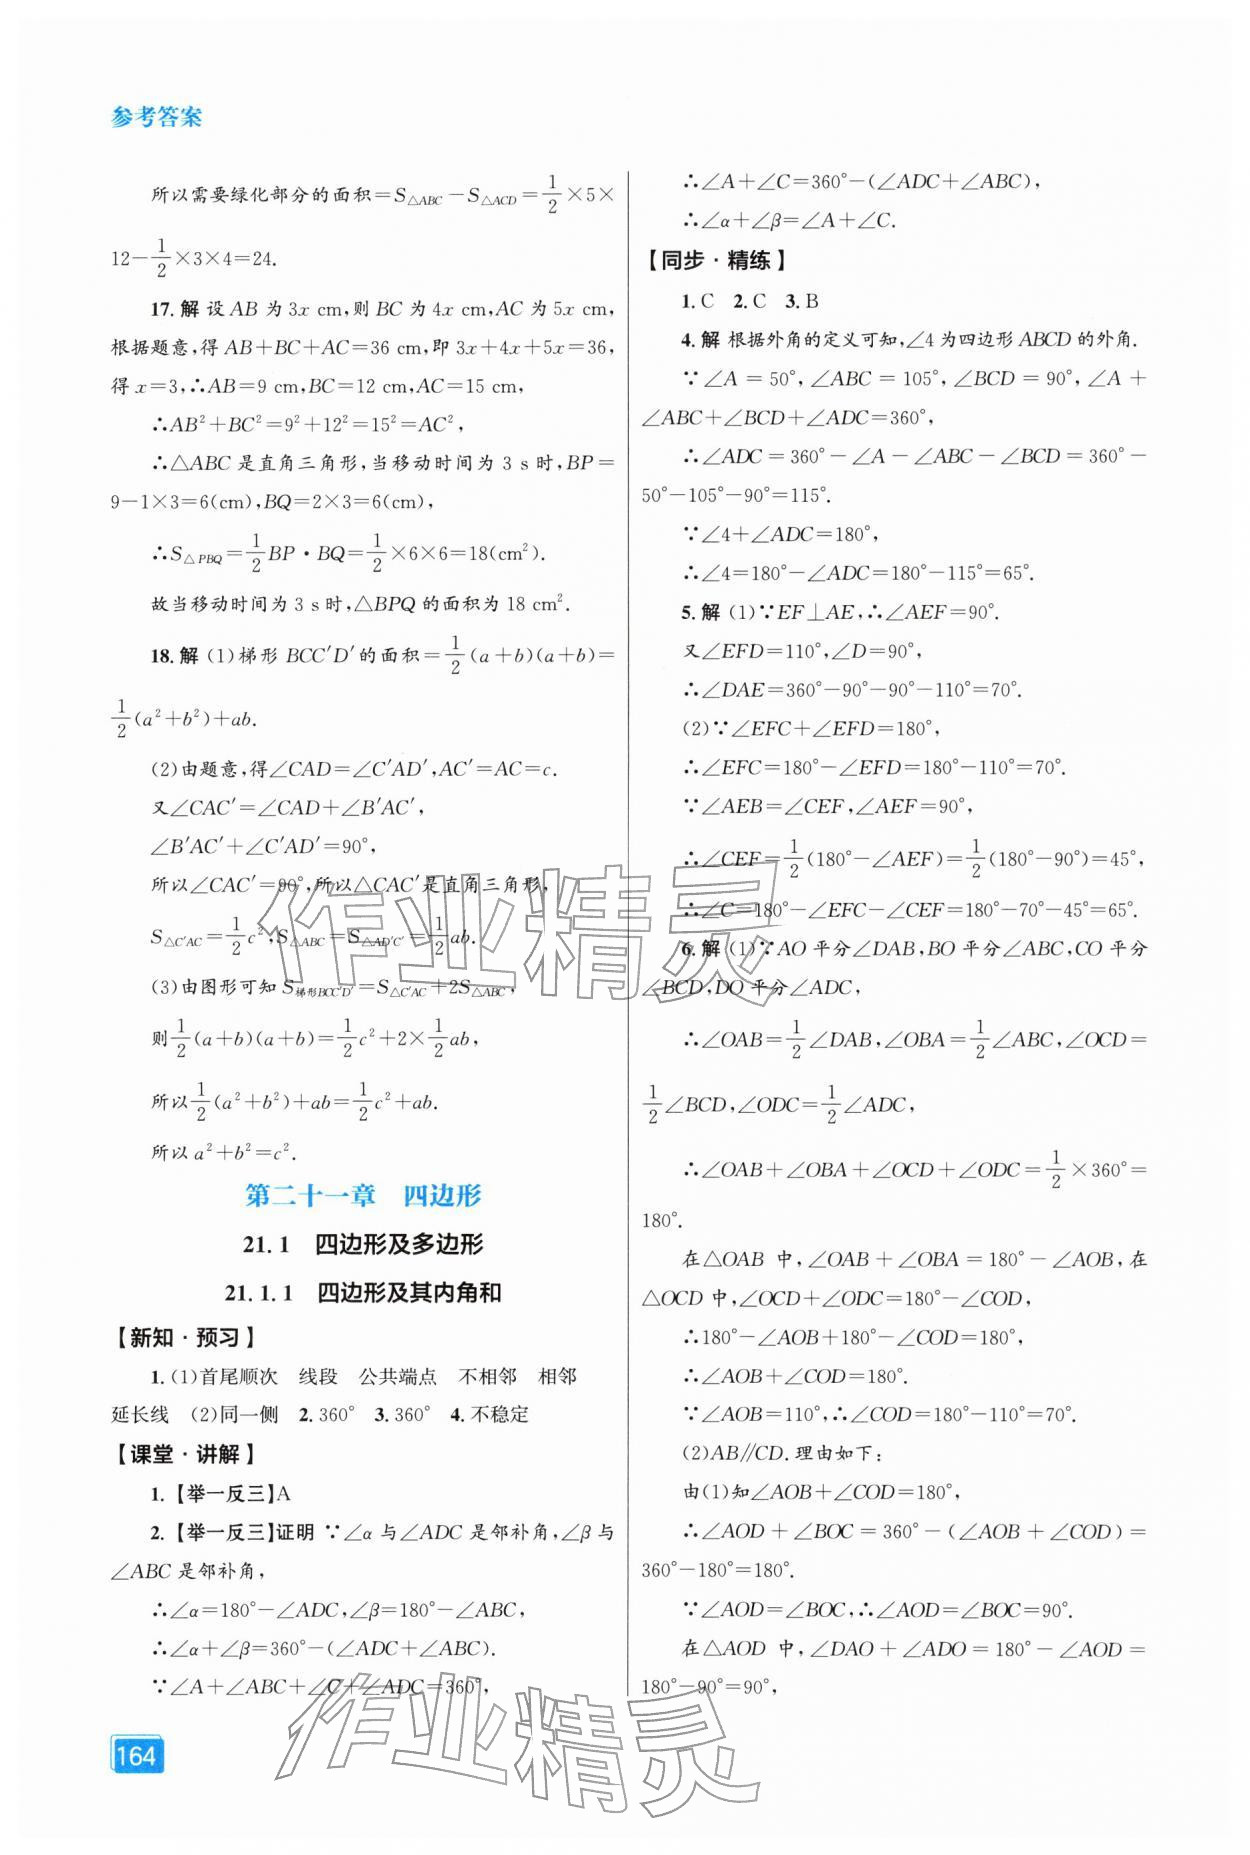 参考答案
所以需要绿化部分的面积=S△ABC-S△ACD=1/2×5×
12-1/2×3×4=24.
17.解 设 AB 为 3x cm,则 BC 为 4x cm,AC 为 5x cm,
根据题意,得 AB+BC+AC=36 cm,即 3x+4x+5x=36,
得 x=3,∴AB=9 cm,BC=12 cm,AC=15 cm,
∴AB²+BC²=9²+12²=15²=AC²,
∴△ABC 是直角三角形,当移动时间为 3 s 时,BP=
9-1×3=6(cm),BQ=2×3=6(cm),
∴S△PBQ=1/2BP·BQ=1/2×6×6=18(cm²).
故当移动时间为 3 s时,△BPQ 的面积为 18 cm².
18.解 (1)梯形 BCC′D′的面积=1/2(a+b)(a+b)=
1/2(a²+b²)+ab.
(2)由题意,得∠CAD=∠C′AD′,AC′=AC=c.
又∠CAC′=∠CAD+∠B′AC′,
∠B′AC′+∠C′AD′=90°,
所以∠CAC′=90°,所以△CAC′是直角三角形,
S△C′AC=1/2c²,S△ABC=S△AD′C′=1/2ab.
(3)由图形可知 S梯形BCC′D′=S△C′AC+2S△ABC,
则1/2(a+b)(a+b)=1/2c²+2×1/2ab,
所以1/2(a²+b²)+ab=1/2c²+ab.
所以 a²+b²=c².
第二十一章 四边形
21.1 四边形及多边形
21.1.1 四边形及其内角和
【新知·预习】
1.(1)首尾顺次 线段 公共端点 不相邻 相邻
延长线 (2)同一侧 2.360° 3.360° 4.不稳定
【课堂·讲解】
1.【举一反三】A
2.【举一反三】证明 ∵∠α与∠ADC 是邻补角,∠β与
∠ABC 是邻补角,
∴∠α=180°-∠ADC,∠β=180°-∠ABC,
∴∠α+∠β=360°-(∠ADC+∠ABC).
∵∠A+∠ABC+∠C+∠ADC=360°,
∴∠A+∠C=360°-(∠ADC+∠ABC),
∴∠α+∠β=∠A+∠C.
【同步·精练】
1.C 2.C 3.B
4.解 根据外角的定义可知,∠4 为四边形 ABCD 的外角.
∵∠A=50°,∠ABC=105°,∠BCD=90°,∠A+
∠ABC+∠BCD+∠ADC=360°,
∴∠ADC=360°-∠A-∠ABC-∠BCD=360°-
50°-105°-90°=115°.
∵∠4+∠ADC=180°,
∴∠4=180°-∠ADC=180°-115°=65°.
5.解 (1)∵EF⊥AE,∴∠AEF=90°.
又∠EFD=110°,∠D=90°,
∴∠DAE=360°-90°-90°-110°=70°.
(2)∵∠EFC+∠EFD=180°,
∴∠EFC=180°-∠EFD=180°-110°=70°.
∵∠AEB=∠CEF,∠AEF=90°,
∴∠CEF=1/2(180°-∠AEF)=1/2(180°-90°)=45°,
∴∠C=180°-∠EFC-∠CEF=180°-70°-45°=65°.
6.解 (1)∵AO 平分∠DAB,BO 平分∠ABC,CO 平分
∠BCD,DO 平分∠ADC,
∴∠OAB=1/2∠DAB,∠OBA=1/2∠ABC,∠OCD=
1/2∠BCD,∠ODC=1/2∠ADC,
∴∠OAB+∠OBA+∠OCD+∠ODC=1/2×360°=
180°.
在△OAB 中,∠OAB+∠OBA=180°-∠AOB,在
△OCD 中,∠OCD+∠ODC=180°-∠COD,
∴180°-∠AOB+180°-∠COD=180°,
∴∠AOB+∠COD=180°.
∵∠AOB=110°,∴∠COD=180°-110°=70°.
(2)AB∥CD.理由如下:
由(1)知∠AOB+∠COD=180°,
∴∠AOD+∠BOC=360°-(∠AOB+∠COD)=
360°-180°=180°.
∵∠AOD=∠BOC,∴∠AOD=∠BOC=90°.
在△AOD 中,∠DAO+∠ADO=180°-∠AOD=
180°-90°=90°,
作业精灵
作业精灵
164